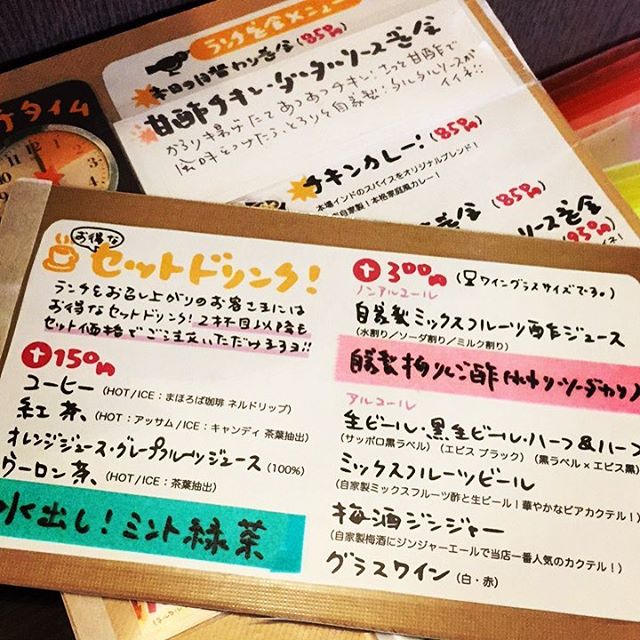 ランチ定食メニュー
本日の日替わり定食(850円)
甘酢チキン・タルタルソース定食
からり揚げたてあつあつチキンにさっと甘酢で
風味をつけたら、とろりと自家製タルタルソースが
イイネ!
(850円)
チキンカレー!(850円)
本場インドのスパイスをオリジナルブレンド!
自家製!本格家庭風カレー!
定食(850円)
ソース定食
(950円)
タイム
12
11
10
9
お得な
セットドリンク!
ランチをお召し上がりのお客さまには
お得なセットドリンク!2杯目以降も
セット価格でご注文いただけますヨ!!
+150円
コーヒー(HOT/ICE:まほろば珈琲 ネルドリップ)
紅茶(HOT:アッサム/ICE:キャンディ 茶葉抽出)
オレンジジュース・グレープフルーツジュース(100%)
ウーロン茶(HOT/ICE:茶葉抽出)
水出し!ミント緑茶
+300円(ワイングラスサイズです。)
ノンアルコール
自家製ミックスフルーツ酢ジュース
(水割り/ソーダ割り/ミルク割り)
自家製梅りんご酢
アルコール
生ビール・黒生ビール・ハーフ&ハーフ
(サッポロ黒ラベル)(エビス ブラック)(黒ラベル×エビス黒)
ミックスフルーツビール
(自家製ミックスフルーツ酢と生ビール!華やかなビアカクテル!)
梅酒ジンジャー
(自家製梅酒にジンジャーエールで当店一番人気のカクテル!)
グラスワイン(白・赤)